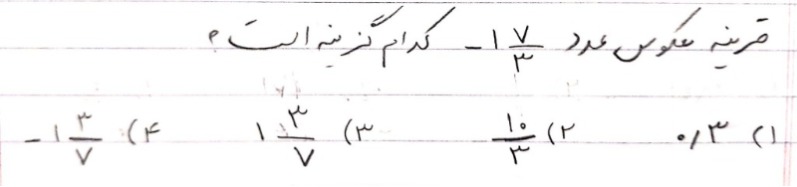 قرینه معکوس عدد -۱ ۷/۳ کدام گزینه است؟
۱) ۰/۳ ۲) ۱۰/۳ ۳) ۱ ۳/۷ ۴) -۱ ۳/۷